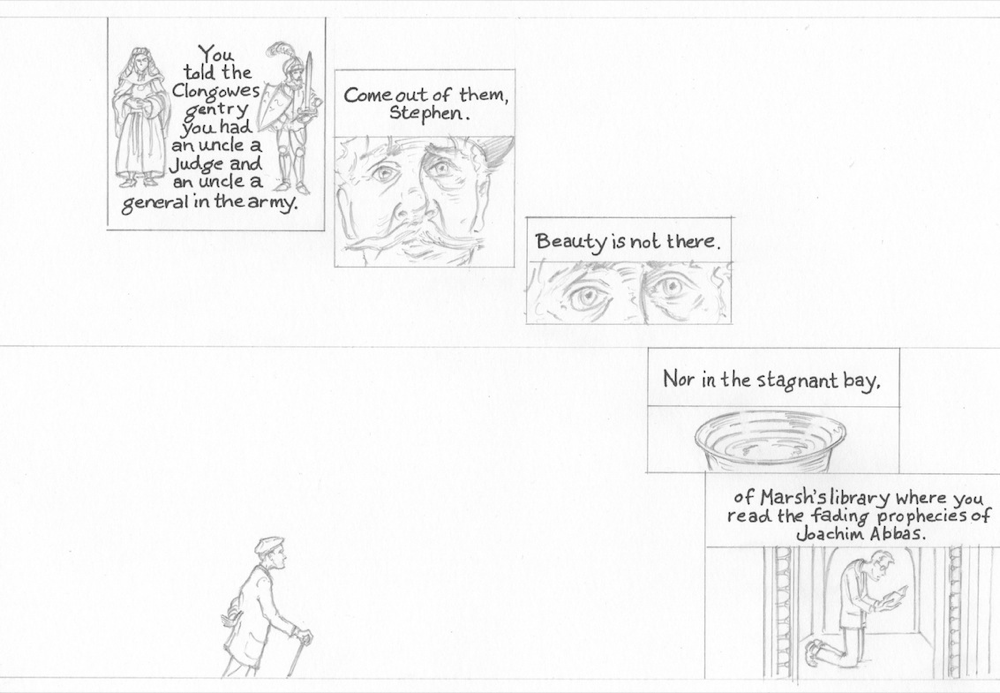 You
told the
Clongowes
gentry
you had
an uncle a
Judge and
an uncle a
general in the army.
Come out of them,
Stephen.
Beauty is not there.
Nor in the stagnant bay,
of Marsh's library where you
read the fading prophecies of
Joachim Abbas.